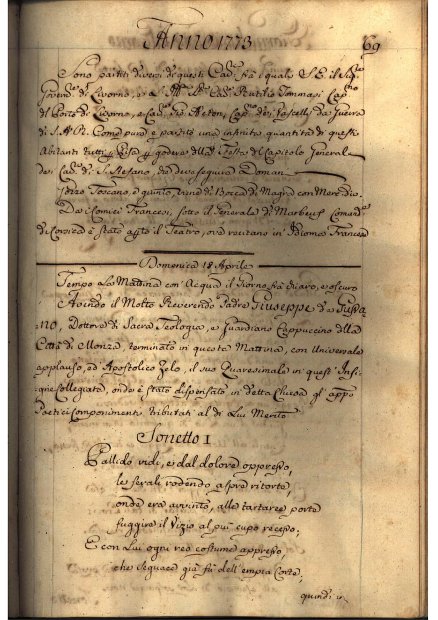 Anno 1773
69
Sono partiti diversi di questi Cav.ri frà i quali S. E. il Sig.re
Govern.e di Livorno, e Cav.e Statilio Tommasi Cap.no
del Porto di Livorno, e Cav.e Acton, Cap.no de' Vascelli da Guerra
di S. A. R. Come pure è partito una infinita quantità di questi
Abitanti tutti p. Pisa p. godere della Festa del Capitolo Generale
dei Cav.ri di S. Stefano, che deve seguire Doman.
Toscano, e quinto, viene di Bocca di Magra con Mercedio.
Dai Comici Francesi, sotto il Generale de Marbeuf Comand.e
di Corsica è stato il Teatro, ove recitano in Idioma Francese
Domenica 18 Aprile
Tempo La Mattina con Acqua il Giorno frà chiaro, e oscuro
Avendo il Molto Reverendo Padre Giuseppe da
no, Dottore di Sacra Teologia, e Guardiano Cappuccino della
Città di Monza terminato in questa Mattina, con Universale
applauso, ed Apostolico Zelo, il suo Quaresimale in quest' Insi-
gne Collegiata, onde è stato dispensato in detta Chiesa gl' app.o
Poetici Componimenti tributati al di Lui Merito
Sonetto I
Pallido vidi, e dal dolore oppresso,
le ferali rodendo aspre ritorte,
onde era avvinto, alle tartaree porte
fuggire il Vizio al più cupo recesso,
E con Lui ogni reo costume appresso,
che seguace già fù dell' empia Corte,
quindi